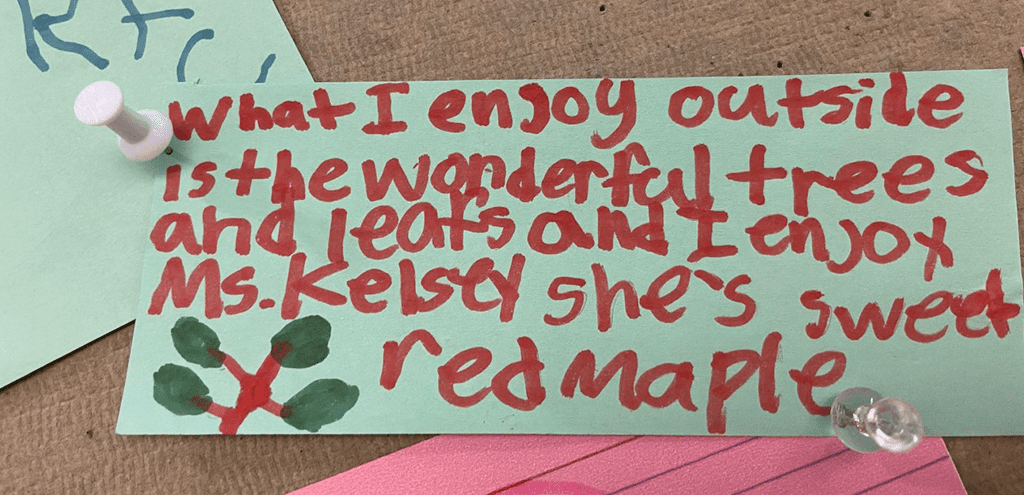 What I enjoy outside
is the wonderful trees
and leafs and I enjoy
Ms. Kelsey she's sweet
red maple